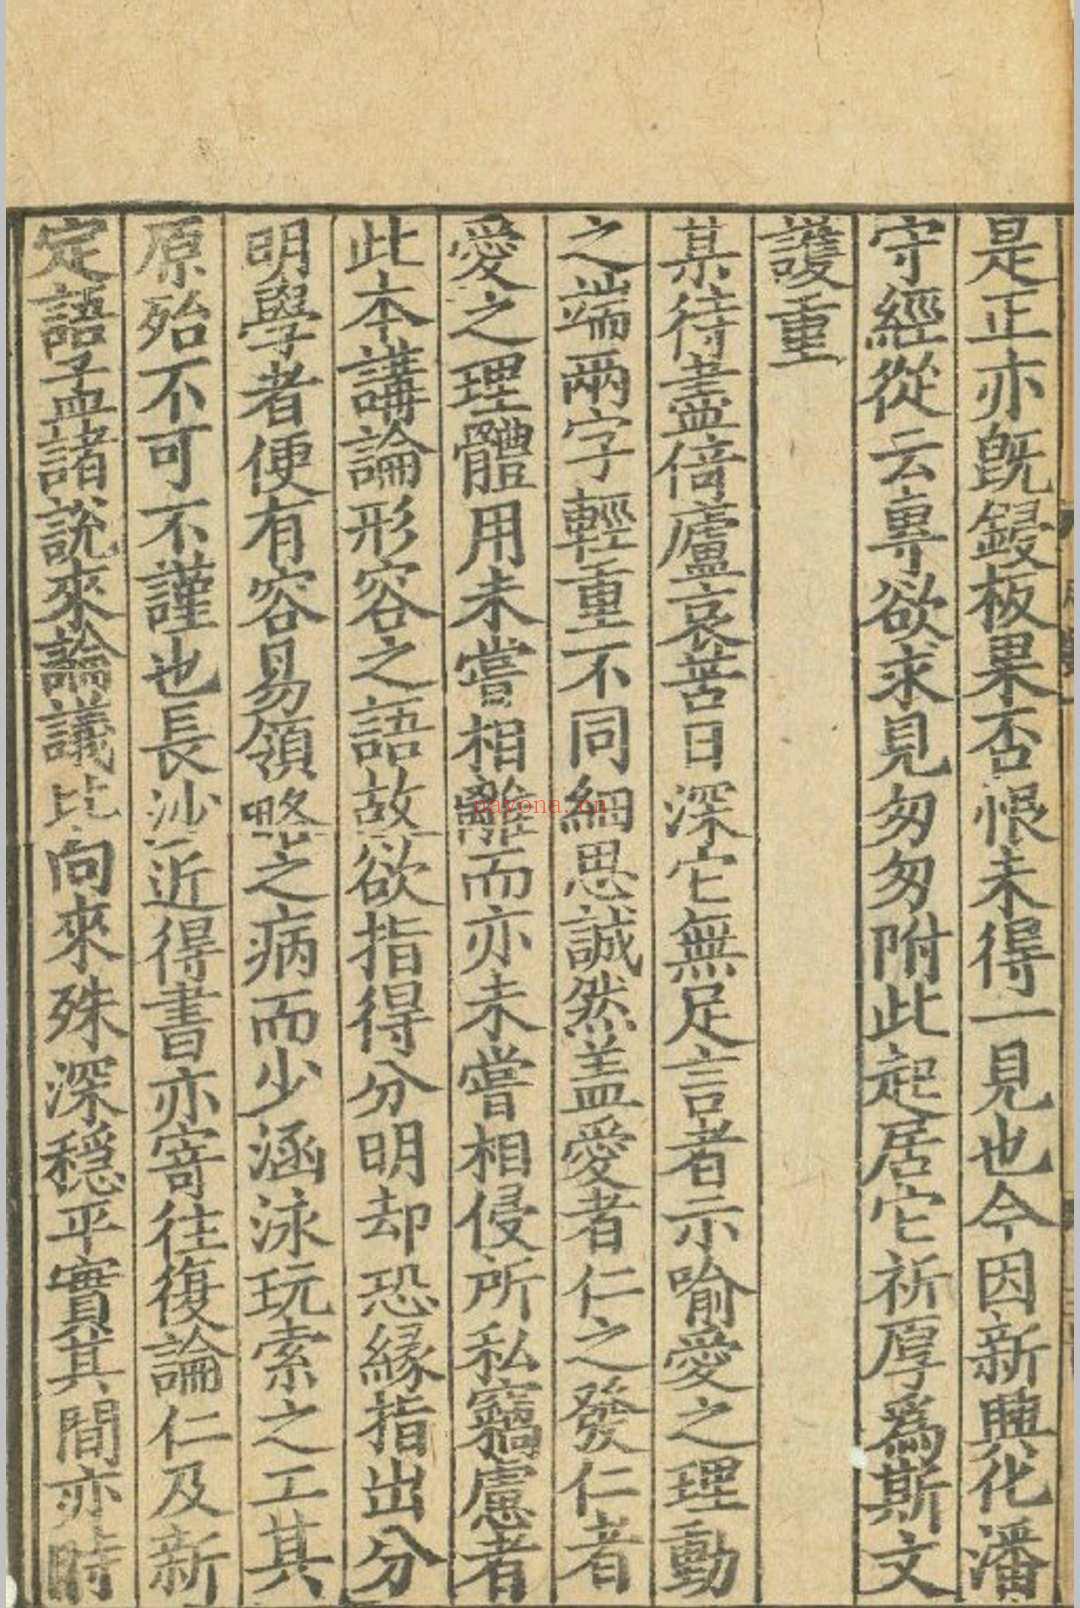 是正亦旣鋟板果否恨未得一見也今因新興化潘
守經從云專欲求見匆匆附此起居它祈厚爲斯文
護重
某待盡倍廬哀苦日深它無足言者示喻愛之理動
之端兩字輕重不同細思誠然盖愛者仁之發仁者
愛之理體用未嘗相離而亦未嘗相侵所私竊慮者
此本講論形容之語故欲指得分明却恐緣指出分
明學者便有容易領略之病而少涵泳玩索之工其
原殆不可不謹也長沙近得書亦寄往復論仁及新
定語孟諸說來論議比向來殊深穩平實其間亦時
nayona.cn